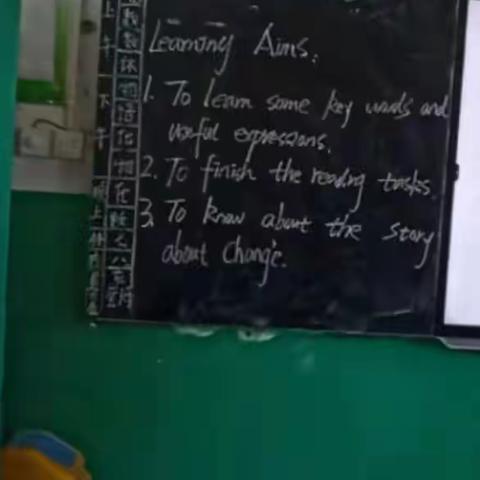 Learning Aims:
1. To learn some key words and
useful expressions.
2. To finish the reading tasks.
3. To know about the story
about Chang'e.
上
午
下
午
数
物
语
化
物
化